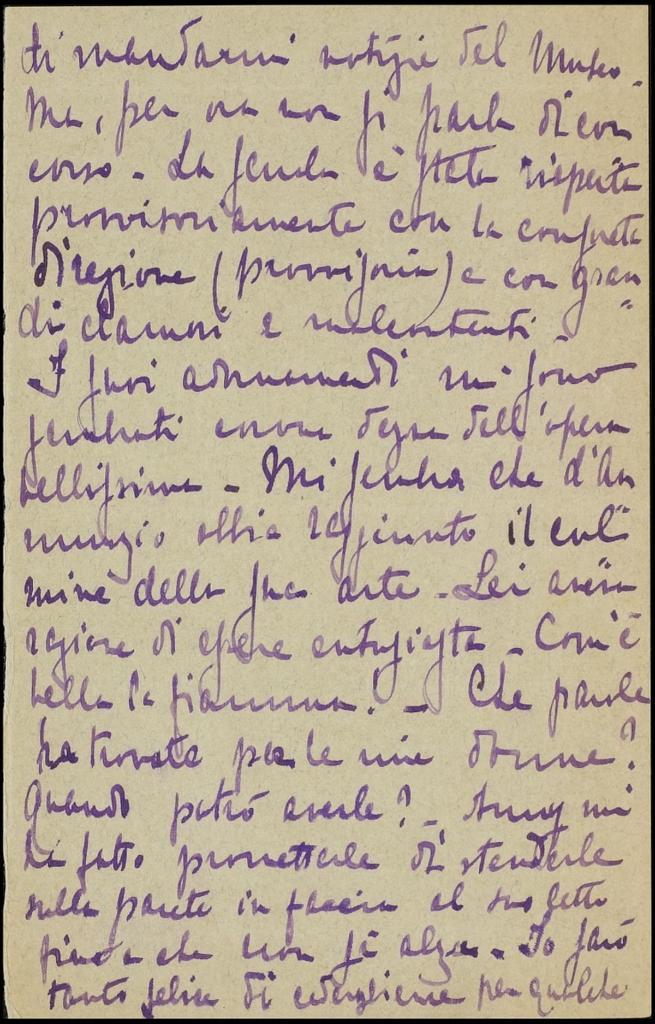 di mandarmi notizie del Museo.
Ma, per ora non si parla di con
corso - La scuola è stata riaperta
provvisoriamente con la consueta
direzione (provvisoria) e con gran
di clamori e malcontenti -
I suoi adornamenti mi sono
sembrati corona degna dell'opera
bellissima - Mi sembra che d'An
nunzio abbia raggiunto il cul
mine della sua arte - Lei aveva
ragione di essere entusiasta - Com'è
bella la fiamma! - Che parole
ha trovate per le mie donne?
Quando potrò averle? - mi
ha fatto promettere di stenderle
sulla parete in faccia al suo letto
finché non si alza - Io sarò
tanto felice di per qualche